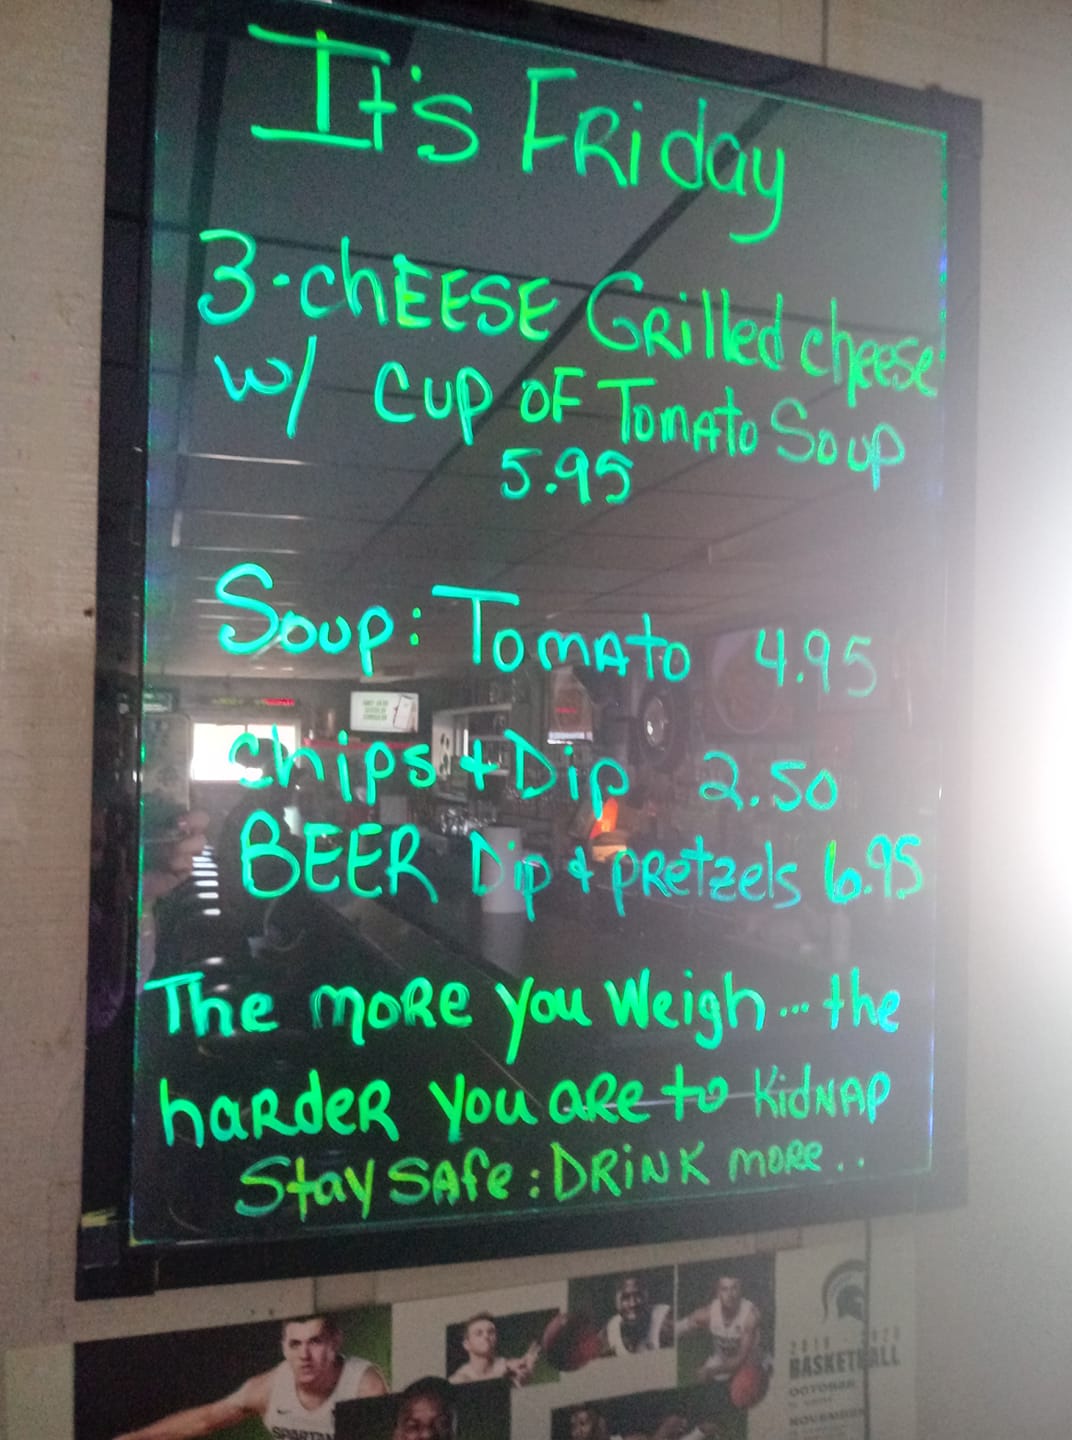 It's FRiday
3-chEESE GRilled cheese
w/ cup OF TomAto Soup
5.95
Soup: TomAto 4.95
chips + Dip 2.50
BEER Dip & pRetzels 6.95
The moRe you Weigh... the
haRdeR you aRe to KidNAP
Stay SAfe: DRiNK moRe..
BASKETBALL
OCTOBER
NOVEMBER
SPARTAN